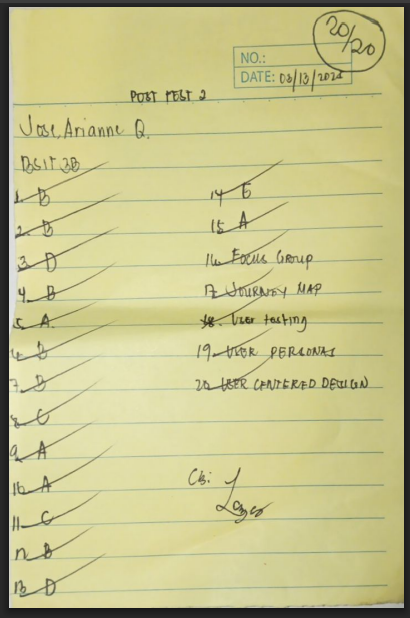 20/20
NO.:
DATE: 03/13/2024
POST TEST 2
Jose, Arianne Q.
BSIT 3B
1. B
2. B
3. D
4. B
5. A.
6. B
7. B
8. C
9. A
10. A
11. C
12. B
13. D
14. E
15. A
16. FOCUS GROUP
17. JOURNEY MAP
18. User testing
19. USER PERSONAS
20. USER CENTERED DESIGN
CB: